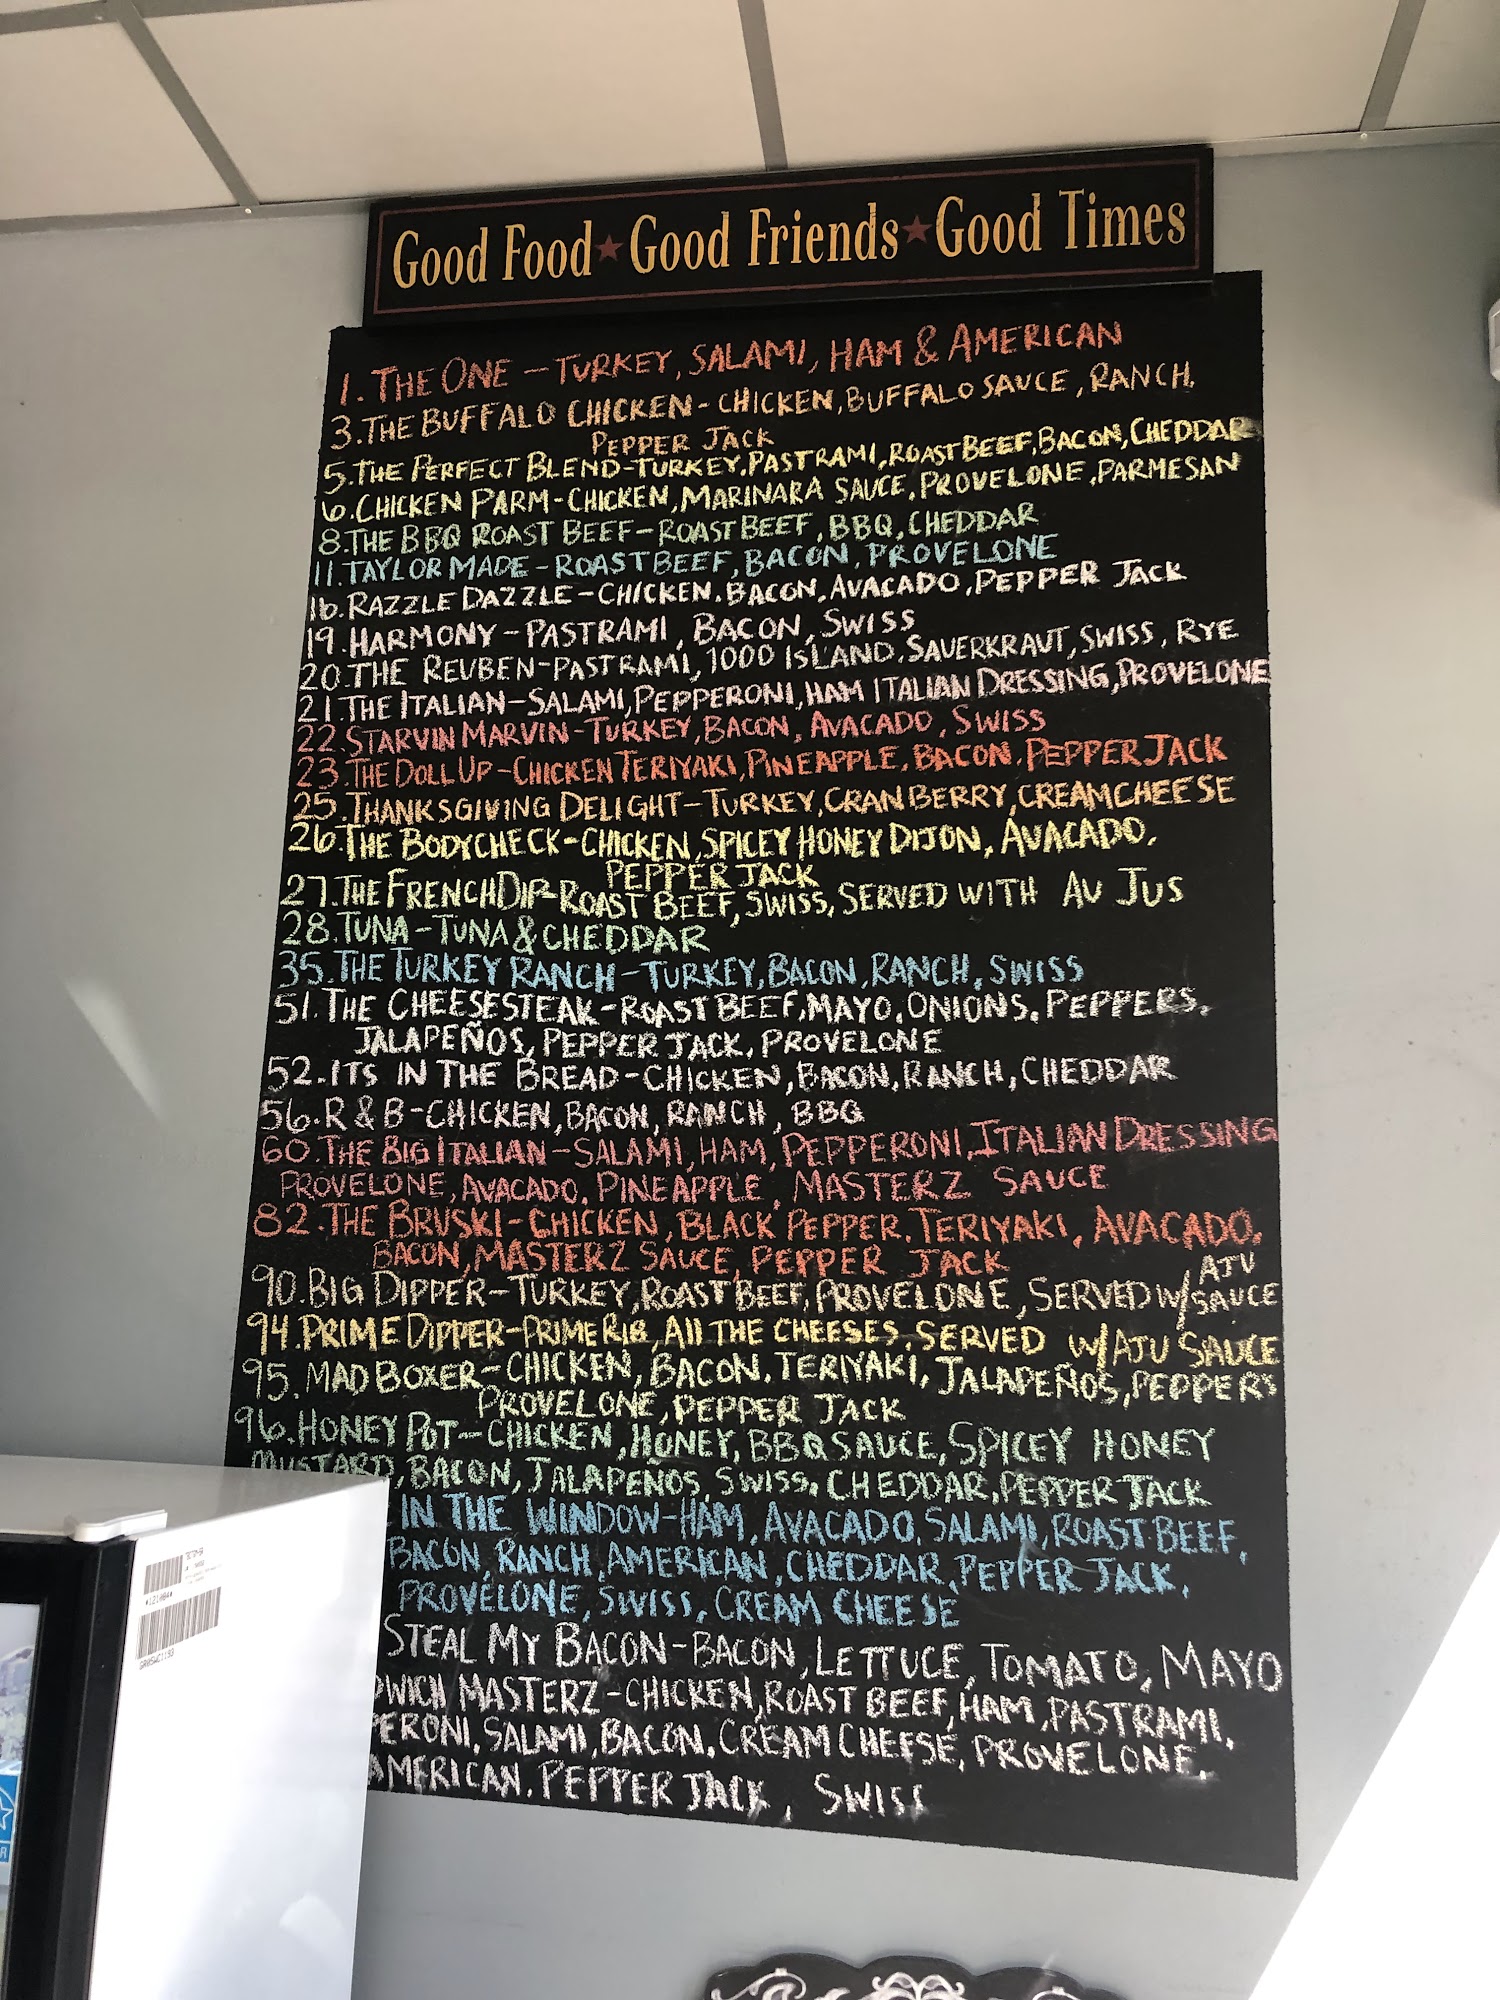 Good Food ★ Good Friends ★ Good Times
1. THE ONE - TURKEY, SALAMI, HAM & AMERICAN
3. THE BUFFALO CHICKEN - CHICKEN, BUFFALO SAUCE, RANCH,
PEPPER JACK
5. THE PERFECT BLEND - TURKEY, PASTRAMI, ROAST BEEF, BACON, CHEDDAR
6. CHICKEN PARM - CHICKEN, MARINARA SAUCE, PROVELONE, PARMESAN
8. THE BBQ ROAST BEEF - ROAST BEEF, BBQ, CHEDDAR
11. TAYLOR MADE - ROAST BEEF, BACON, PROVELONE
16. RAZZLE DAZZLE - CHICKEN, BACON, AVACADO, PEPPER JACK
19. HARMONY - PASTRAMI, BACON, SWISS
20. THE REUBEN - PASTRAMI, 1000 ISLAND, SAUERKRAUT, SWISS, RYE
21. THE ITALIAN - SALAMI, PEPPERONI, HAM ITALIAN DRESSING, PROVELONE
22. STARVIN MARVIN - TURKEY, BACON, AVACADO, SWISS
23. THE DOLL UP - CHICKEN TERIYAKI, PINEAPPLE, BACON, PEPPER JACK
25. THANKSGIVING DELIGHT - TURKEY, CRANBERRY, CREAM CHEESE
26. THE BODYCHECK - CHICKEN, SPICEY HONEY DIJON, AVACADO,
PEPPER JACK
27. THE FRENCH DIP - ROAST BEEF, SWISS, SERVED WITH AU JUS
28. TUNA - TUNA & CHEDDAR
35. THE TURKEY RANCH - TURKEY, BACON, RANCH, SWISS
51. THE CHEESESTEAK - ROAST BEEF, MAYO, ONIONS, PEPPERS,
JALAPEÑOS, PEPPER JACK, PROVELONE
52. ITS IN THE BREAD - CHICKEN, BACON, RANCH, CHEDDAR
56. R & B - CHICKEN, BACON, RANCH, BBQ
60. THE BIG ITALIAN - SALAMI, HAM, PEPPERONI, ITALIAN DRESSING
PROVELONE, AVACADO, PINEAPPLE, MASTERZ SAUCE
82. THE BRUSKI - CHICKEN, BLACK PEPPER, TERIYAKI, AVACADO,
BACON, MASTERZ SAUCE, PEPPER JACK
90. BIG DIPPER - TURKEY, ROAST BEEF, PROVELONE, SERVED W/ AJU SAUCE
94. PRIME DIPPER - PRIME RIB, All THE CHEESES, SERVED W/ AJU SAUCE
95. MAD BOXER - CHICKEN, BACON, TERIYAKI, JALAPEÑOS, PEPPERS
PROVELONE, PEPPER JACK
96. HONEY POT - CHICKEN, HONEY, BBQ SAUCE, SPICEY HONEY
MUSTARD, BACON, JALAPEÑOS, SWISS, CHEDDAR, PEPPER JACK
IN THE WINDOW - HAM, AVACADO, SALAMI, ROAST BEEF,
BACON, RANCH, AMERICAN, CHEDDAR, PEPPER JACK,
PROVELONE, SWISS, CREAM CHEESE
STEAL MY BACON - BACON, LETTUCE, TOMATO, MAYO
DWICH MASTERZ - CHICKEN, ROAST BEEF, HAM, PASTRAMI,
PERONI, SALAMI, BACON, CREAM CHEESE, PROVELONE,
AMERICAN, PEPPER JACK, SWISS